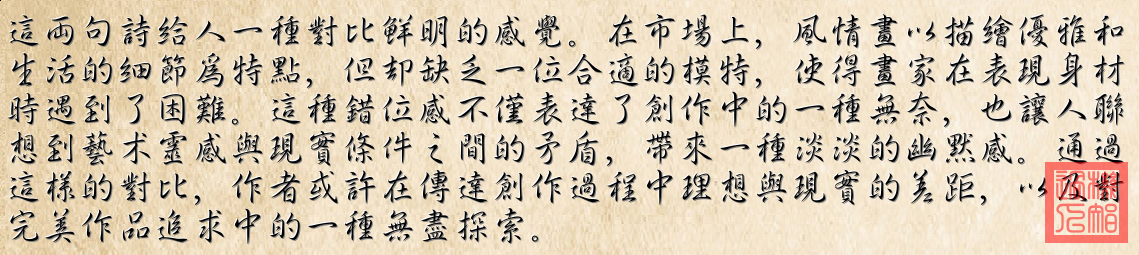 這両句詩給人一種對比鮮明的感覺。在市場上，風情畫以描繪優雅和
生活的细節爲特點，但却缺乏一位合適的模特，使得畫家在表現身材
時遇到了困難。這種錯位感不僅表達了創作中的一種無奈，也讓人聯
想到藝术靈感與現實條件之間的矛盾，帶來一種淡淡的幽默感。通過
這樣的對比，作者或許在傳達創作過程中理想與現實的差距，以及對
完美作品追求中的一種無盡探索。